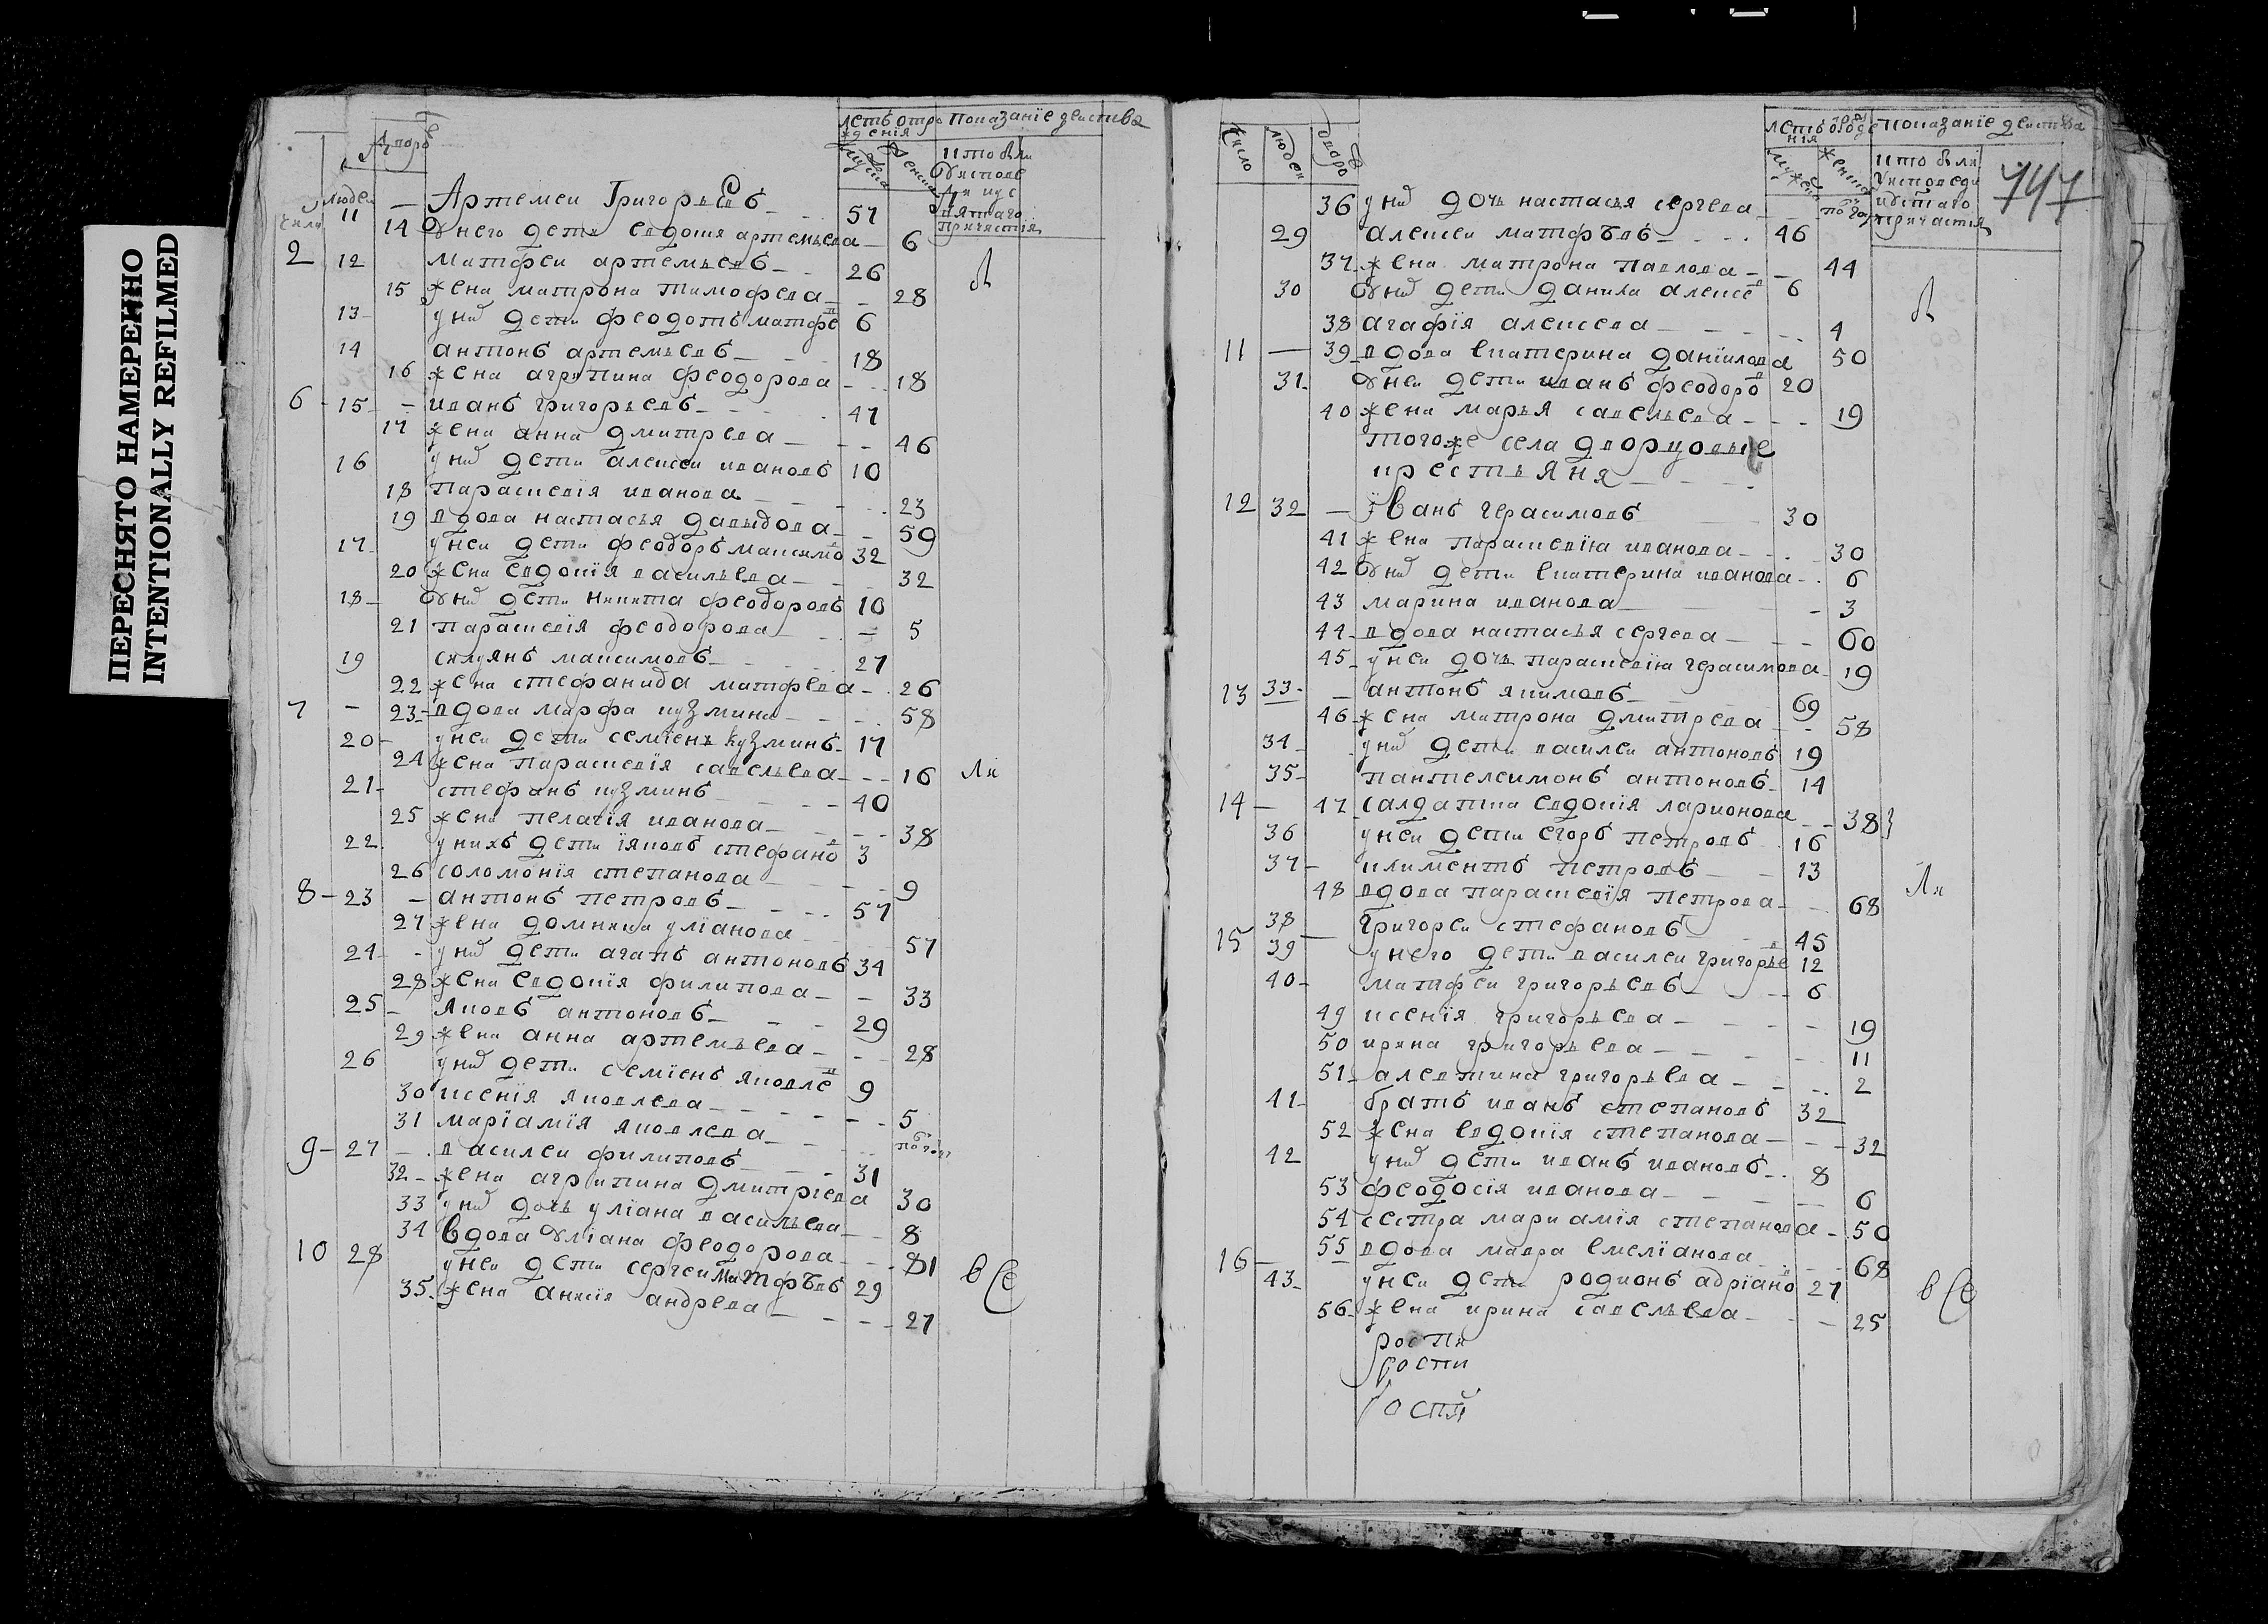 ПЕРЕСНЯТО НАМЕРЕННО
INTENTIONALLY REFILMED
летъ отро показание действа
ждения
дворъ
людей
11 — Артемеи Григорьевъ 57
14 у него дети евдокия артемьева 6
2 12 матфеи артемьевъ 26
15 жена матрона тимофеева 28
13 у них дети феодотъ матфе 6
14 антонъ артемьевъ 18
16 жена агрипина феодорова 18
6 15 — иванъ григорьевъ 47
17 жена анна дмитрева 46
16 у них дети алексеи ивановъ 10
18 параскевия иванова 23
19 вдова настасья давыдова 59
17 у неи дети феодоръ максимо 32
20 жена евдокия васильева 32
18 у них дети никита феодоровъ 10
21 параскевия феодорова 5
19 силуянъ максимовъ 27
22 жена стефанида матфева 26
7 — 23 вдова марфа кузмина 58
20 у неи дети семиенъ кузминъ 17
24 жена параскевия савельева 16 ли
21 стефанъ кузминъ 40
25 жена пелагия иванова 38
22 у нихъ дети iяковъ стефано 3
26 соломонiя степанова 9
8 — 23 — антонъ петровъ 57
27 жена домника улiанова 57
24 у них дети агапъ антоновъ 34
28 жена евдокия филипова 33
25 яковъ антоновъ 29
29 жена анна артемьева 28
26 у них дети семиенъ яковле 9
30 ксенiя яковлева 5
31 марiамiя яковлева по году
9 — 27 — василеи филиповъ 31
32 жена агрипина дмитриева 30
33 у них дочь улiана васильева 8
34 вдова улiана феодорова 81
10 28 у неи дети сергеи матфѣевъ 29
35 жена анисiя андрева 27
все
число людеи дворъ
летъ показанiе действа
747
36 у них дочь настасья сергева
29 алексеи матфѣевъ 46
37 жена матрона павлова 44
30 у них дети данила алексе 6
38 агафiя алексева 4
11 — 39 вдова екатерина данiилова 50
31 у неи дети иванъ феодоро 20
40 жена марья савельева 19
тогоже села дворцовые
крестьяня
12 32 — Iванъ герасимовъ 30
41 жена параскевiя иванова 30
42 у них дети екатерина иванова 6
43 марина иванова 3
44 вдова настасья сергева 60
45 у неи дочь параскевiя герасимова 19
13 33 — антонъ якимовъ 69
46 жена матрона дмитрева 58
34 у них дети василеи антоновъ 19
35 пантелеимонъ антоновъ 14
14 — 47 салдатка евдокiя ларионова 38
36 у неи дети егоръ петровъ 16
37 климентъ петровъ 13
48 вдова параскевiя петрова 68
ли
15 38 — григореи стефановъ 45
39 у него дети василеи григорье 12
40 матфеи григорьевъ 6
49 ксенiя григорьева 19
50 ирина григорьева 11
51 алевтина григорьева 2
41 братъ иванъ степановъ 32
52 жена евдокiя степанова 32
42 у них дети иванъ ивановъ 8
53 феодосiя иванова 6
54 сестра мариамiя степанова 50
16 — 55 вдова мавра емелiанова 68
43 у неи дети родионъ адрiано 27
56 жена ирина савельева 25
все
роспи
роспи
роспи